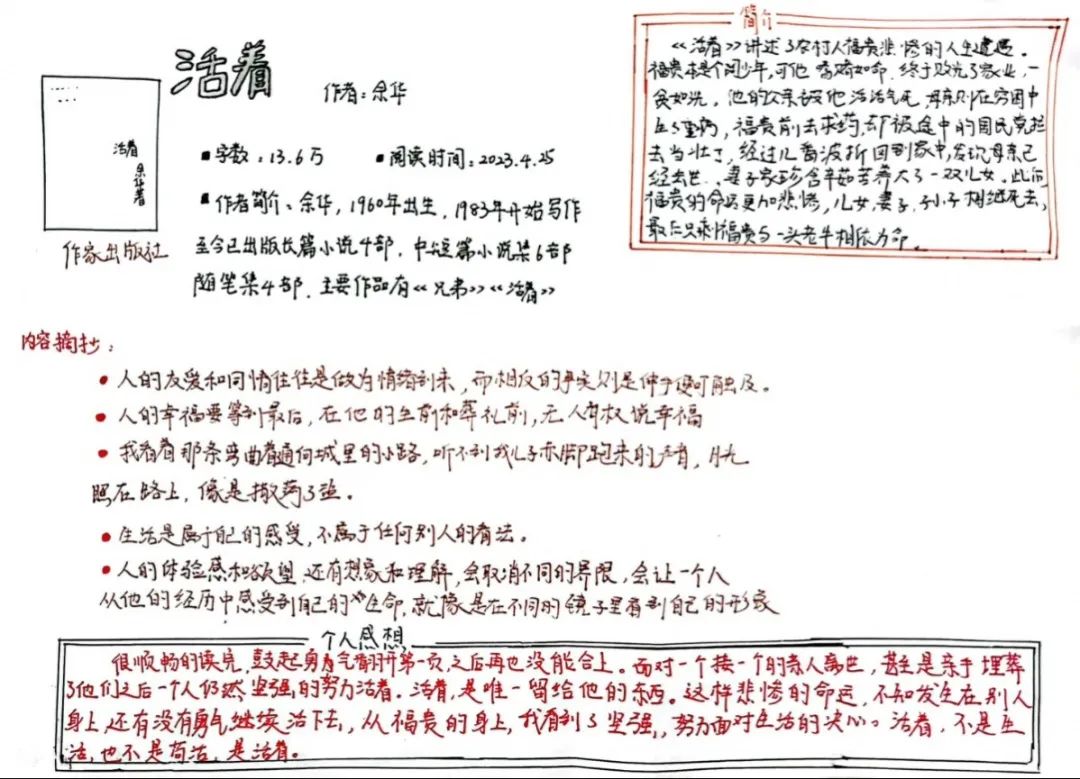 活着
作者：余华
活着
余华著
作家出版社
▪字数：13.6万 ▪阅读时间：2023.4.25
▪作者简介：余华，1960年出生，1983年开始写作
至今已出版长篇小说4部，中短篇小说集6部
随笔集4部．主要作品有《兄弟》《活着》
简介
《活着》讲述了农村人福贵悲惨的人生遭遇。
福贵本是个阔少年，可他嗜赌如命，终于败光了家业，一
贫如洗。他的父亲被他活活气死，母亲则在穷困中
生了重病，福贵前去求药，却被途中的国民党拉
去当壮丁，经过几番波折回到家中，发现母亲已
经去世，妻子家珍含辛茹苦养大了一双儿女。此后
福贵的命运更加悲惨，儿女，妻子，孙子相继死去，
最后只剩福贵与一头老牛相依为命。
内容摘抄：
• 人的友爱和同情往往是做为情绪到来，而相反的事实则是伸手便可触及。
• 人的幸福要等到最后，在他的生前和葬礼前，无人有权说幸福
• 我看着那条弯曲着通向城里的小路，听不到我儿子赤脚跑来的声音，月光
照在路上，像是撒满了盐。
• 生活是属于自己的感受，不属于任何别人的看法。
• 人的体验感和欲望，还有想象和理解，会取消不同的界限，会让一个人
从他的经历中感受到自己的生命，就像是在不同的镜子里看到自己的形象
个人感想
很顺畅的读完，鼓起勇气翻开第一页之后再也没能合上。面对一个接一个的亲人离世，甚至是亲手埋葬
了他们之后一个人仍然坚强的努力活着。活着，是唯一留给他的东西。这样悲惨的命运，不知发生在别人
身上还有没有勇气继续活下去，从福贵的身上，我看到了坚强，努力面对生活的决心。活着，不是生
活，也不是苟活，是活着。